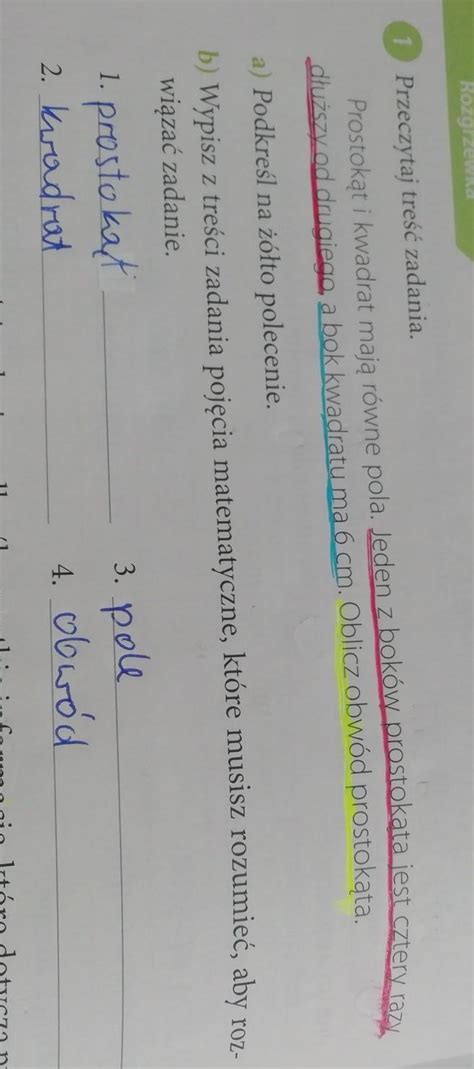 1 Przeczytaj treść zadania.
Prostokąt i kwadrat mają równe pola. Jeden z boków prostokąta jest cztery razy
dłuższy od drugiego, a bok kwadratu ma 6 cm. Oblicz obwód prostokąta.
a) Podkreśl na żółto polecenie.
b) Wypisz z treści zadania pojęcia matematyczne, które musisz rozumieć, aby roz-
wiązać zadanie.
1. prostokąt
3. pole
2. kwadrat
4. obwód